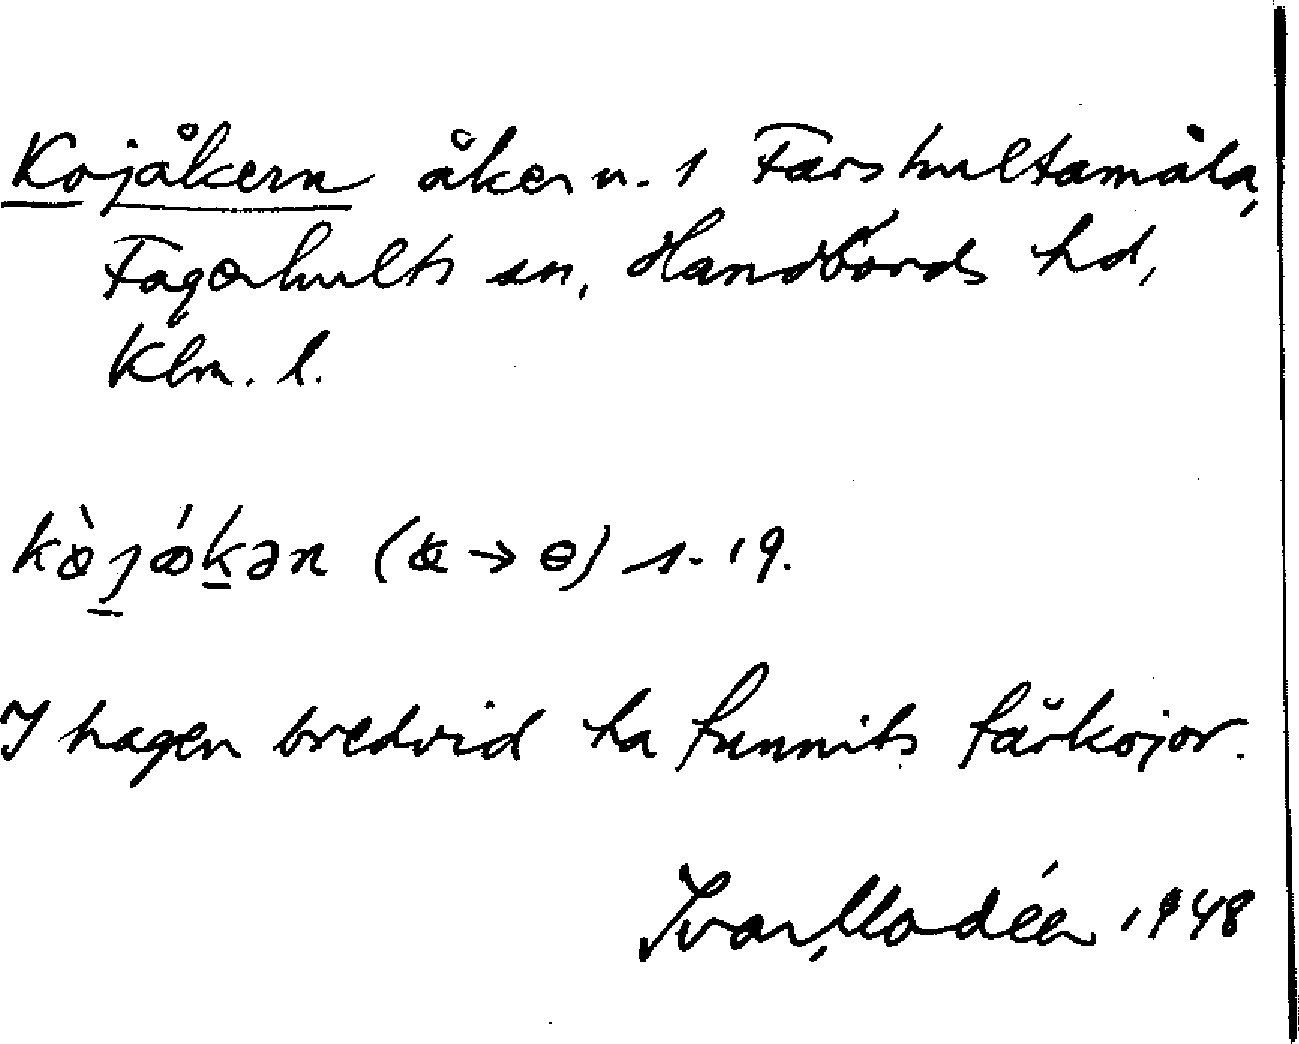 Kojåkern åker n. 1 Farshultamåla,
Fagerhults sn, Handbörds hd,
Klm. l.
I hagen bredvid ha funnits fårkojor.
Ivar Modéer 1948